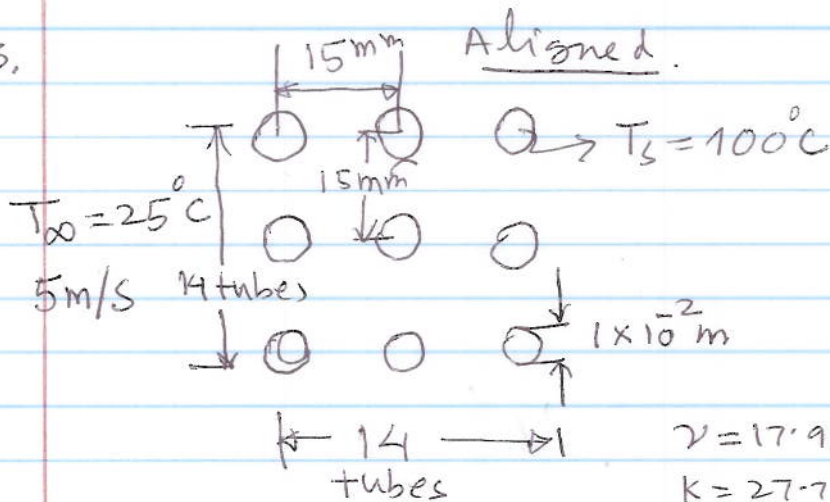 3.
15mm
Aligned.
Ts = 100°C
15mm
T∞ = 25°C
5m/s
14 tubes
1 × 10⁻² m
14
tubes
ν = 17.9
K = 27.7